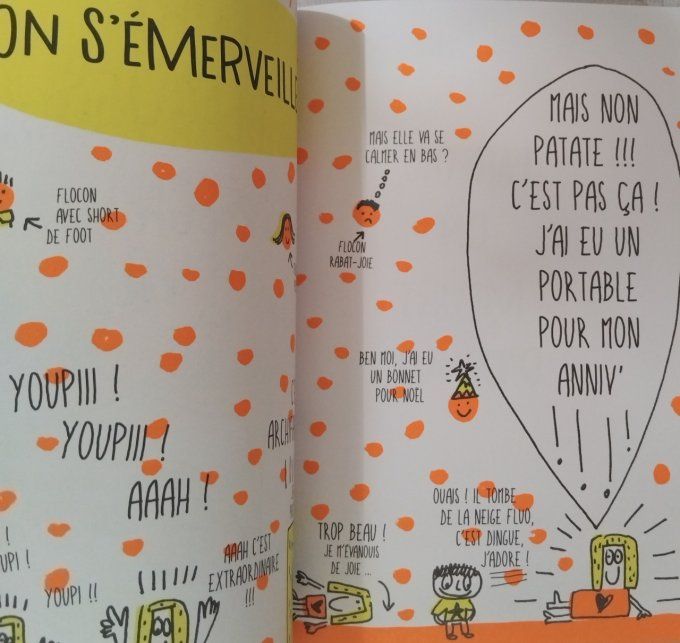 ON S'ÉMERVEILLE
FLOCON
AVEC SHORT
DE FOOT
YOUPIII !
YOUPIII !
AAAH !
!
UPI !
YOUPI !!
AAAH C'EST
EXTRAORDINAIRE
!!!
MAIS ELLE VA SE
CALMER EN BAS ?
FLOCON
RABAT-JOIE
MAIS NON
PATATE !!!
C'EST PAS ÇA !
J'AI EU UN
PORTABLE
POUR MON
ANNIV'
! ! ! !
BEN MOI, J'AI EU
UN BONNET
POUR NOËL
TROP BEAU !
JE M'ÉVANOUIS
DE JOIE ...
OUAIS ! IL TOMBE
DE LA NEIGE FLUO,
C'EST DINGUE,
J'ADORE !